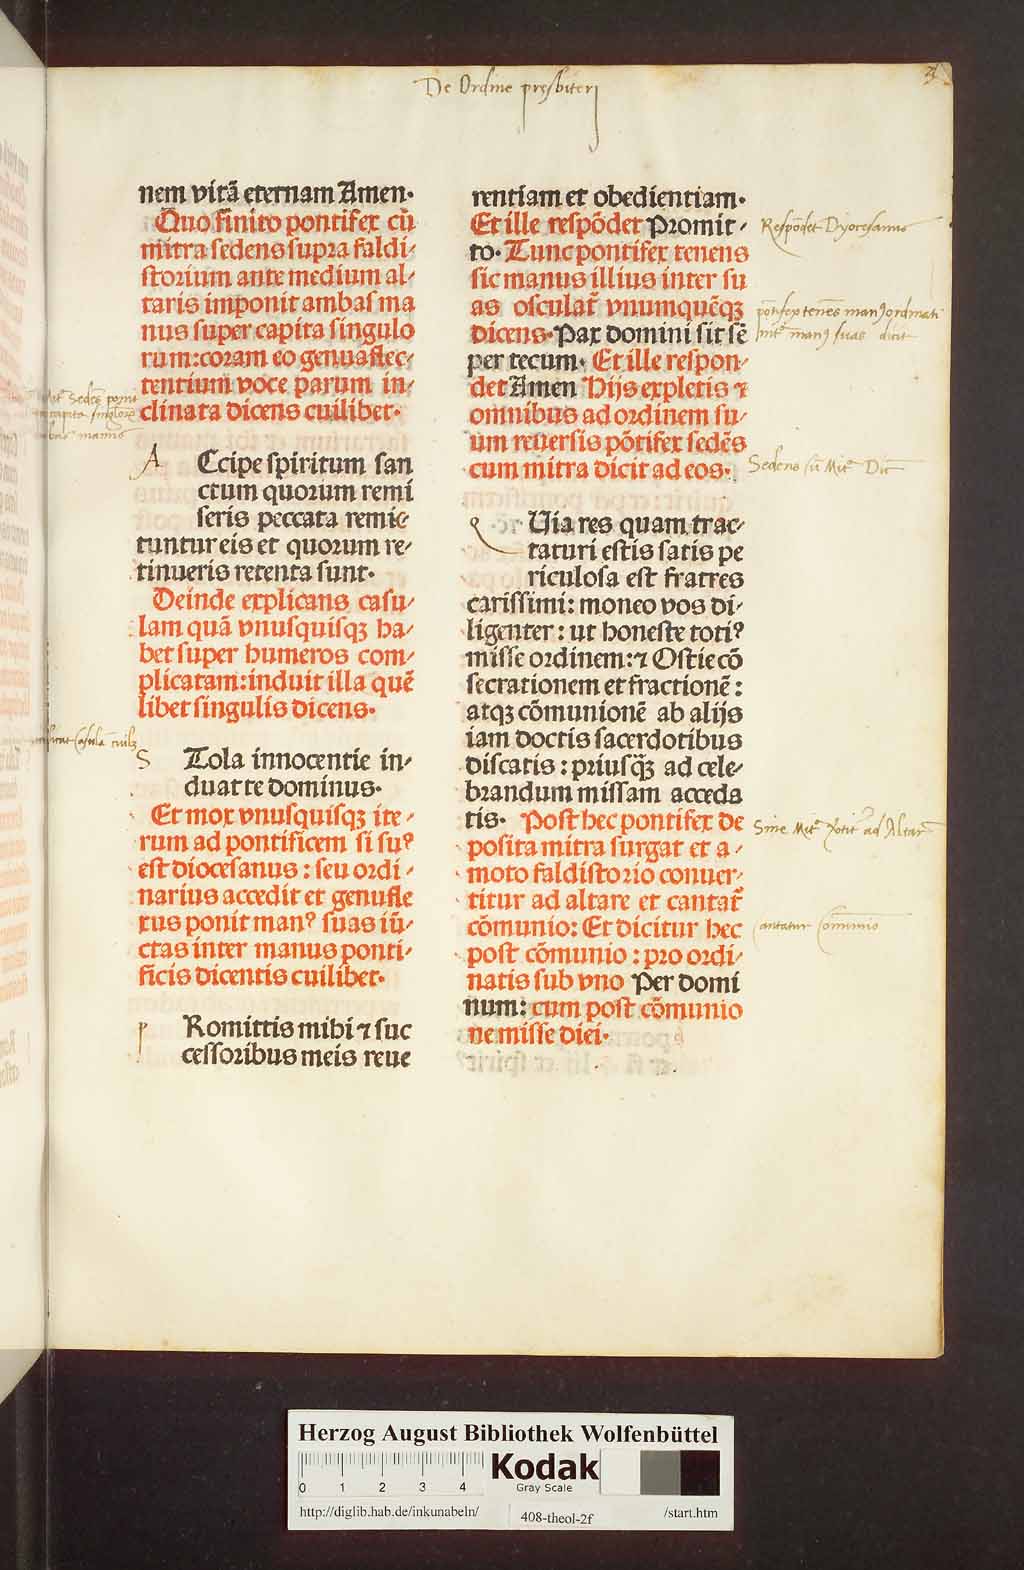 De Ordine presbiterj
nem vitā eternam Amen.
Quo finito pontifex cū
mitra sedens supra faldi/
storium ante medium al/
taris imponit ambas ma
nus super capita singulo
rum: coram eo genuaflec/
tentium voce parum in/
clinata dicens cuilibet.
A Ccipe spiritum san
ctum quorum remi
seris peccata remit
tuntur eis et quorum re/
tinueris retenta sunt.
Deinde explicans casu/
lam quā vnusquisqȝ ha/
bet super humeros com/
plicatam: induit illa quē
libet singulis dicens.
S Tola innocentie in/
duat te dominus.
Et mox vnusquisqȝ ite/
rum ad pontificem si suꝰ
est diocesanus: seu ordi/
narius accedit et genufle
xus ponit manꝰ suas iū/
ctas inter manus ponti/
ficis dicentis cuilibet.
p Romittis mihi ⁊ suc
cessoribus meis reue
rentiam et obedientiam.
Et ille respōdet Promit/
to. Tunc pontifex tenens
sic manus illius inter su
as osculat᷑ vnumquēqȝ
dicens. Pax domini sit sē
per tecum. Et ille respon/
det Amen Hijs expletis ⁊
omnibus ad ordinem su/
um reuersis pōtifex sedēs
cum mitra dicit ad eos.
q Uia res quam trac/
taturi estis satis pe
riculosa est fratres
carissimi: moneo vos di/
ligenter: ut honeste totiꝰ
misse ordinem: ⁊ Ostie cō
secrationem et fractionē:
atqȝ cōmunionē ab alijs
iam doctis sacerdotibus
discatis: priusqȝ̄ ad cele/
brandum missam acceda
tis. Post hec pontifex de
posita mitra surgat et a/
moto faldistorio conuer/
titur ad altare et cantat᷑
cōmunio: Et dicitur hec
post cōmunio: pro ordi/
natis sub vno Per domi
num: cum post cōmunio
ne misse diei.
Respōdet Dyocesanus
pōtifex tenēs manꝰ ordinati
int᷑ manꝰ suas dicit
Sedens cū Mit᷑ Dic̄
Sine Mit᷑ ad Altar
Cantatur Cōmunio
Herzog August Bibliothek Wolfenbüttel
0 1 2 3 4
Kodak
Gray Scale
http://diglib.hab.de/inkunabeln/
408-theol-2f
/start.htm